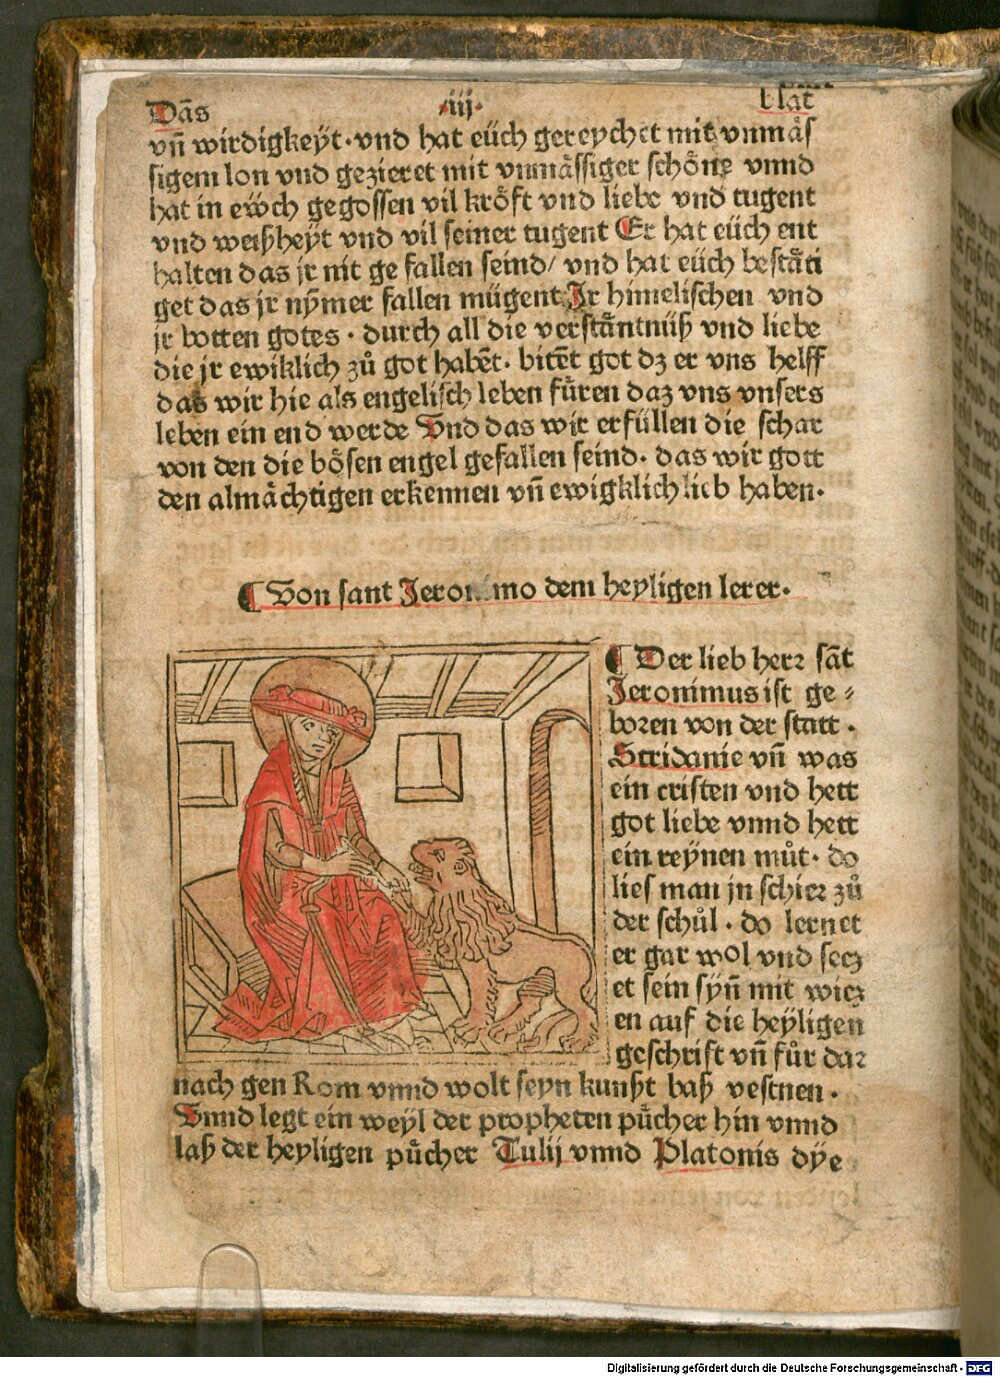 Dās ·iij· blat
vn̄ wirdigkeÿt · vnd hat eüch gereychet mit vnmås
sigem lon vnd gezieret mit vnmåssiger schöne vnnd
hat in ewch gegossen vil kröft vnd liebe vnd tugent
vnd weißheÿt vnd vil seiner tugent Er hat eüch ent
halten das jr nit ge fallen seind / vnd hat eüch beståti
get das jr nÿmer fallen mügent Jr himelischen vnd
jr botten gotes · durch all die verståntnüß vnd liebe
die jr ewiklich zů got habēt · bitēt got dz er vns helff
das wir hie als engelisch leben füren daz vns vnsers
leben ein end werde Vnd das wir erfüllen die schar
von den die bösen engel gefallen seind · das wir gott
den almächtigen erkennen vn̄ ewigklich lieb haben ·
¶ Von sant Jeronimo dem heyligen lerer ·
¶ Der lieb herr sāt
Jeronimus ist ge⸗
boren von der statt ·
Stridanie vn̄ was
ein cristen vnd hett
got liebe vnnd hett
ein reÿnen můt · do
lies man jn schier zů
der schůl · do lernet
er gar wol vnd secz
et sein sÿn̄ mit wicz
en auf die heÿligen
geschrift vn̄ fůr dar
nach gen Rom vnnd wolt seyn kunßt baß vestnen ·
Vnnd legt ein weÿl der propheten pücher hin vnnd
laß der heyligen pücher Tulij vnnd Platonis dÿe
Digitalisierung gefördert durch die Deutsche Forschungsgemeinschaft - DFG